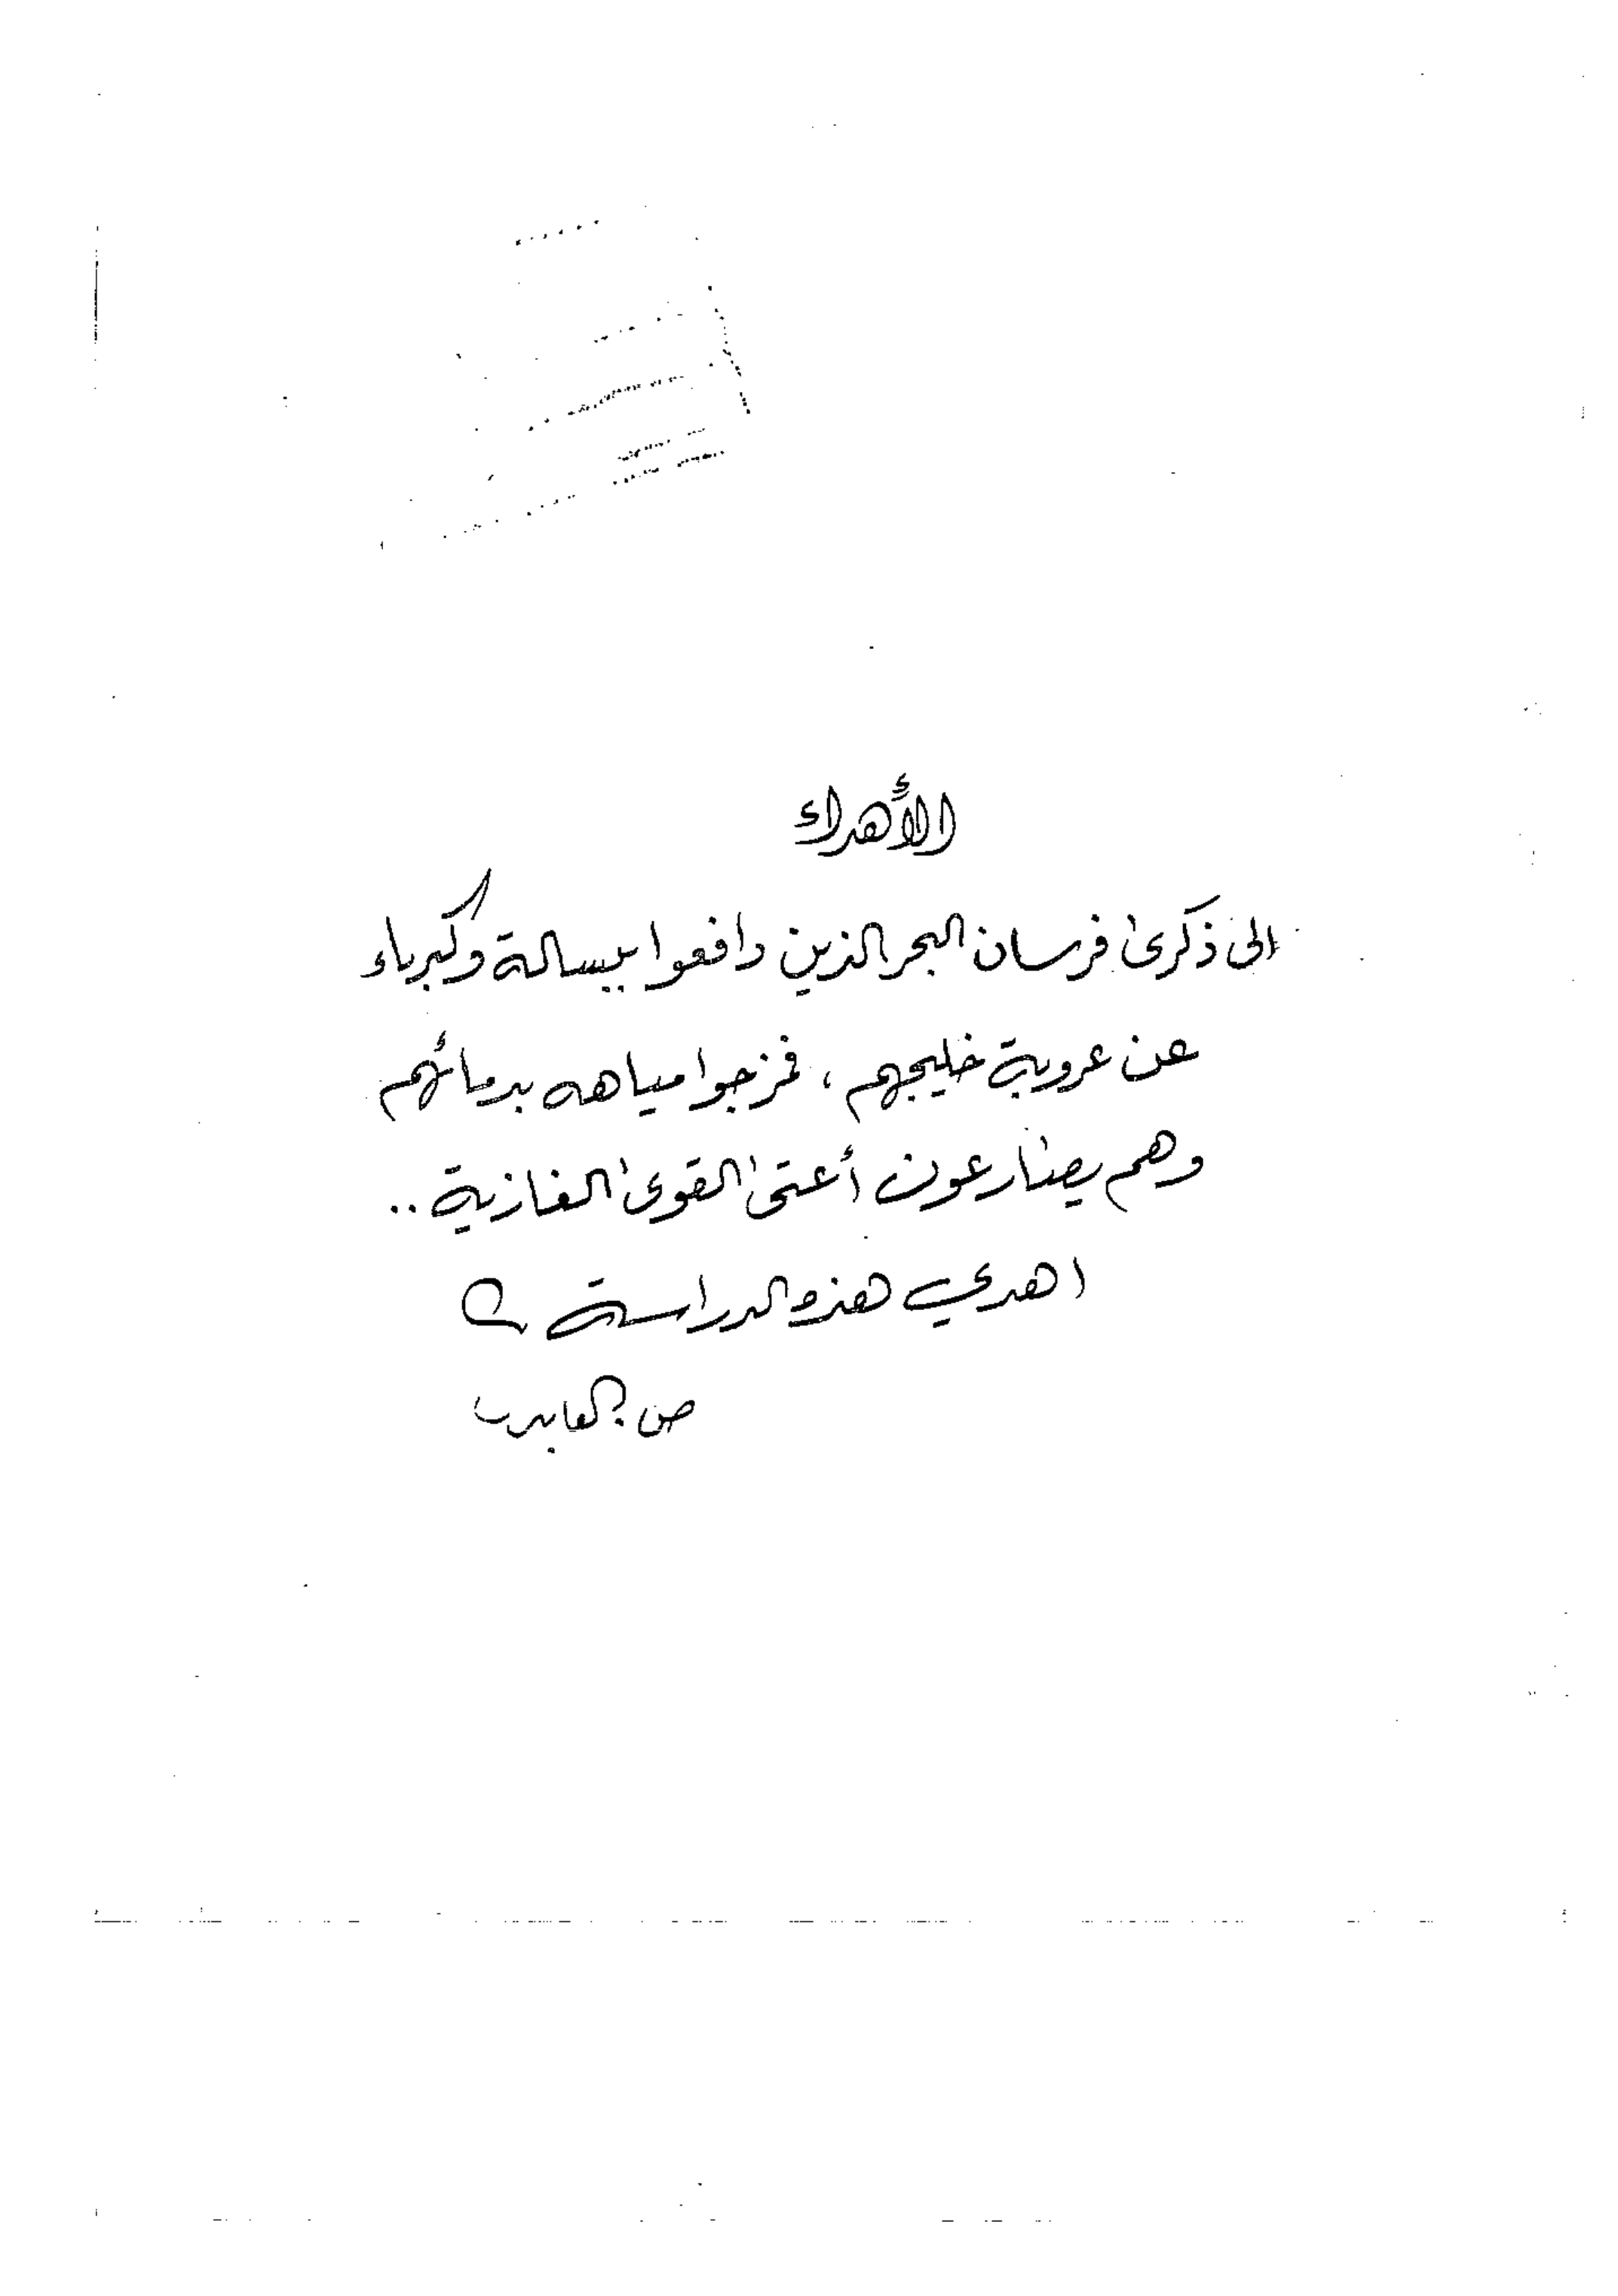 الأهداء
إلى ذكرى فرسان البحر الذين دافعوا ببسالة وكبرياء
عن عروبة خليجهم ، فمزجوا مياهه بدمائهم
وهم يصارعون أعتى القوى الغازية ..
اهدي هذه الدراسة
ص . العابد